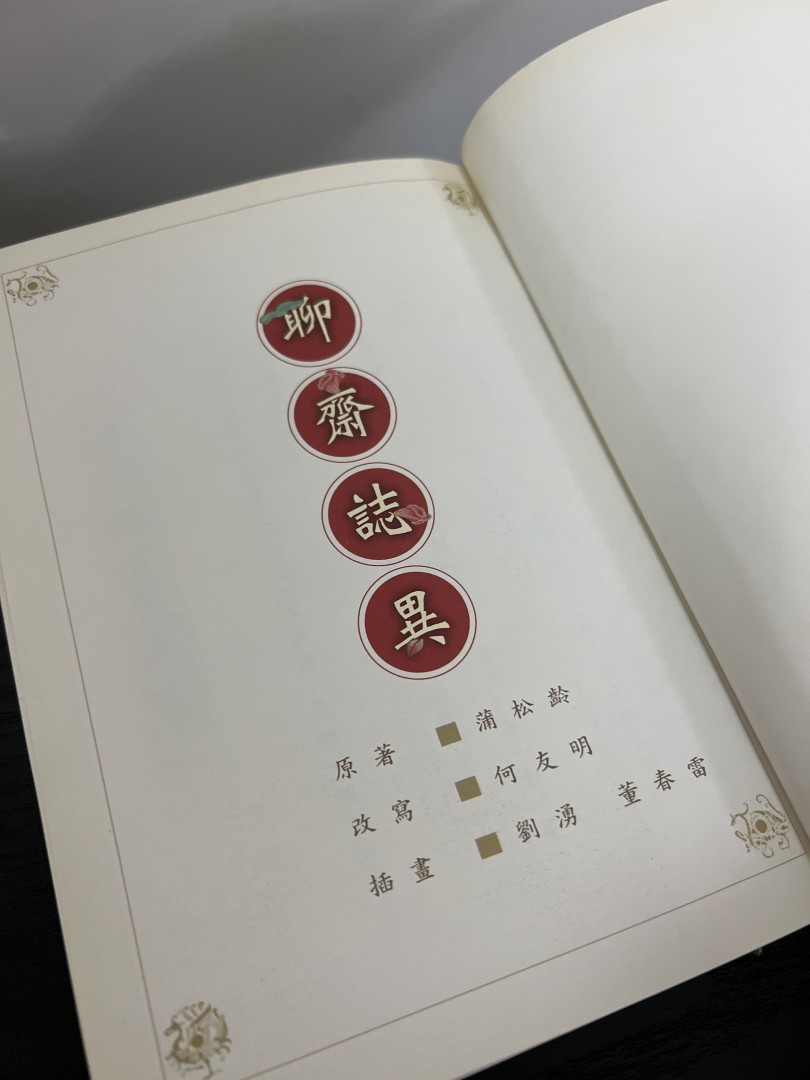 聊齋誌異
原著 ■ 蒲松齡
改寫 ■ 何友明
插畫 ■ 劉湧 董春雷